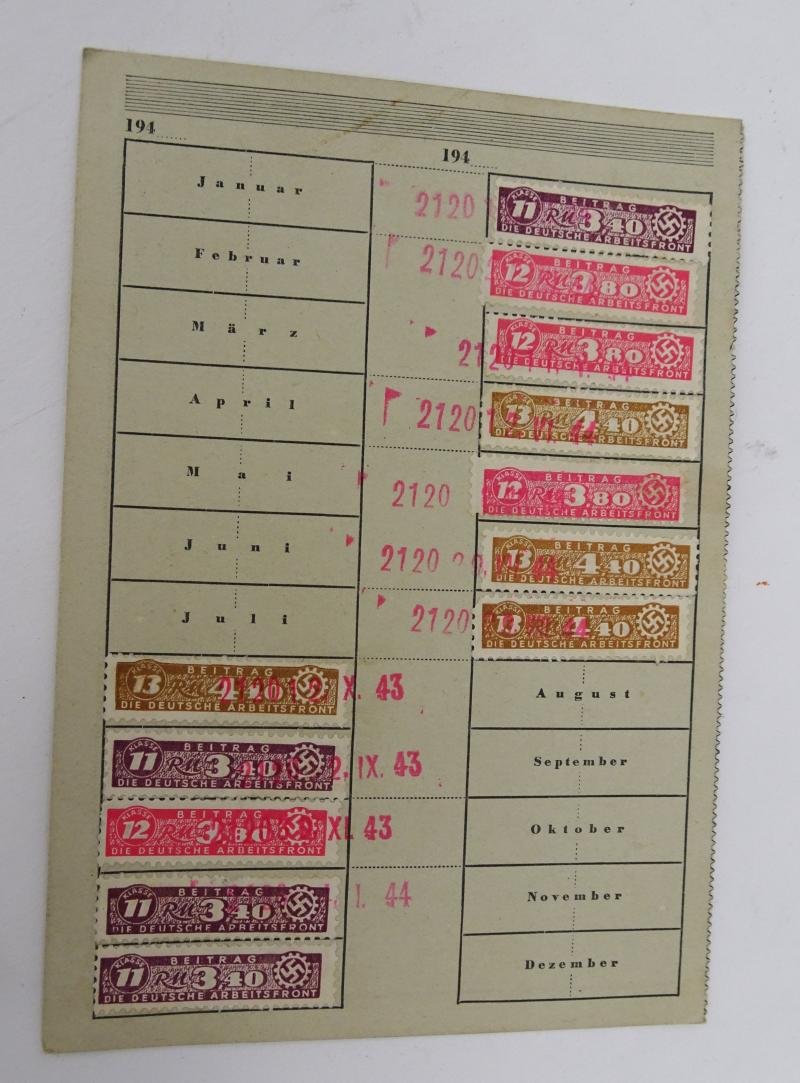 194
Januar
Februar
März
April
Mai
Juni
Juli
KLASSE 13 BEITRAG RM 4 40
DIE DEUTSCHE ARBEITSFRONT
2120 X. 43
KLASSE 11 BEITRAG RM 3 40
DIE DEUTSCHE ARBEITSFRONT
2. IX. 43
KLASSE 12 BEITRAG RM 3 80
DIE DEUTSCHE ARBEITSFRONT
XI. 43
KLASSE 11 BEITRAG RM 3 40
DIE DEUTSCHE ARBEITSFRONT
I. 44
KLASSE 11 BEITRAG RM 3 40
DIE DEUTSCHE ARBEITSFRONT
194
2120
KLASSE 11 BEITRAG RM 3 40
DIE DEUTSCHE ARBEITSFRONT
2120
KLASSE 12 BEITRAG RM 3 80
DIE DEUTSCHE ARBEITSFRONT
2120
KLASSE 12 BEITRAG RM 3 80
DIE DEUTSCHE ARBEITSFRONT
2120 VI. 44
KLASSE 13 BEITRAG RM 4 40
DIE DEUTSCHE ARBEITSFRONT
2120
KLASSE 12 BEITRAG RM 3 80
DIE DEUTSCHE ARBEITSFRONT
2120
KLASSE 13 BEITRAG RM 4 40
DIE DEUTSCHE ARBEITSFRONT
2120 44
KLASSE 13 BEITRAG RM 4 40
DIE DEUTSCHE ARBEITSFRONT
August
September
Oktober
November
Dezember